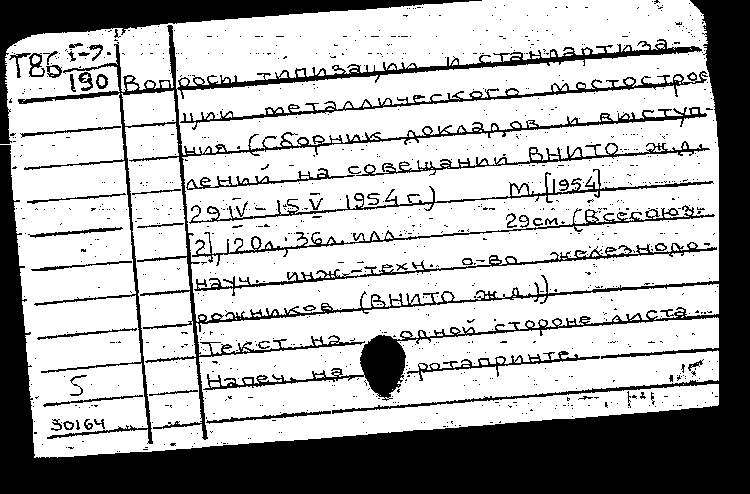 Т86 Г-7
190
Вопросы типизации и стандартиза-
ции металлического мостострое
ния. (Сборник докладов и выступ-
лений на совещании ВНИТО ж.д.
29 IV - 15 V 1954 г.) М., [1954]
[2], 120л.; 36л. илл. 29см. (Всесоюз.
науч. инж.-техн. о-во железнодо-
рожников (ВНИТО ж.д.)).
Текст на одной стороне листа.
Напеч. на ротапринте.
5
30164